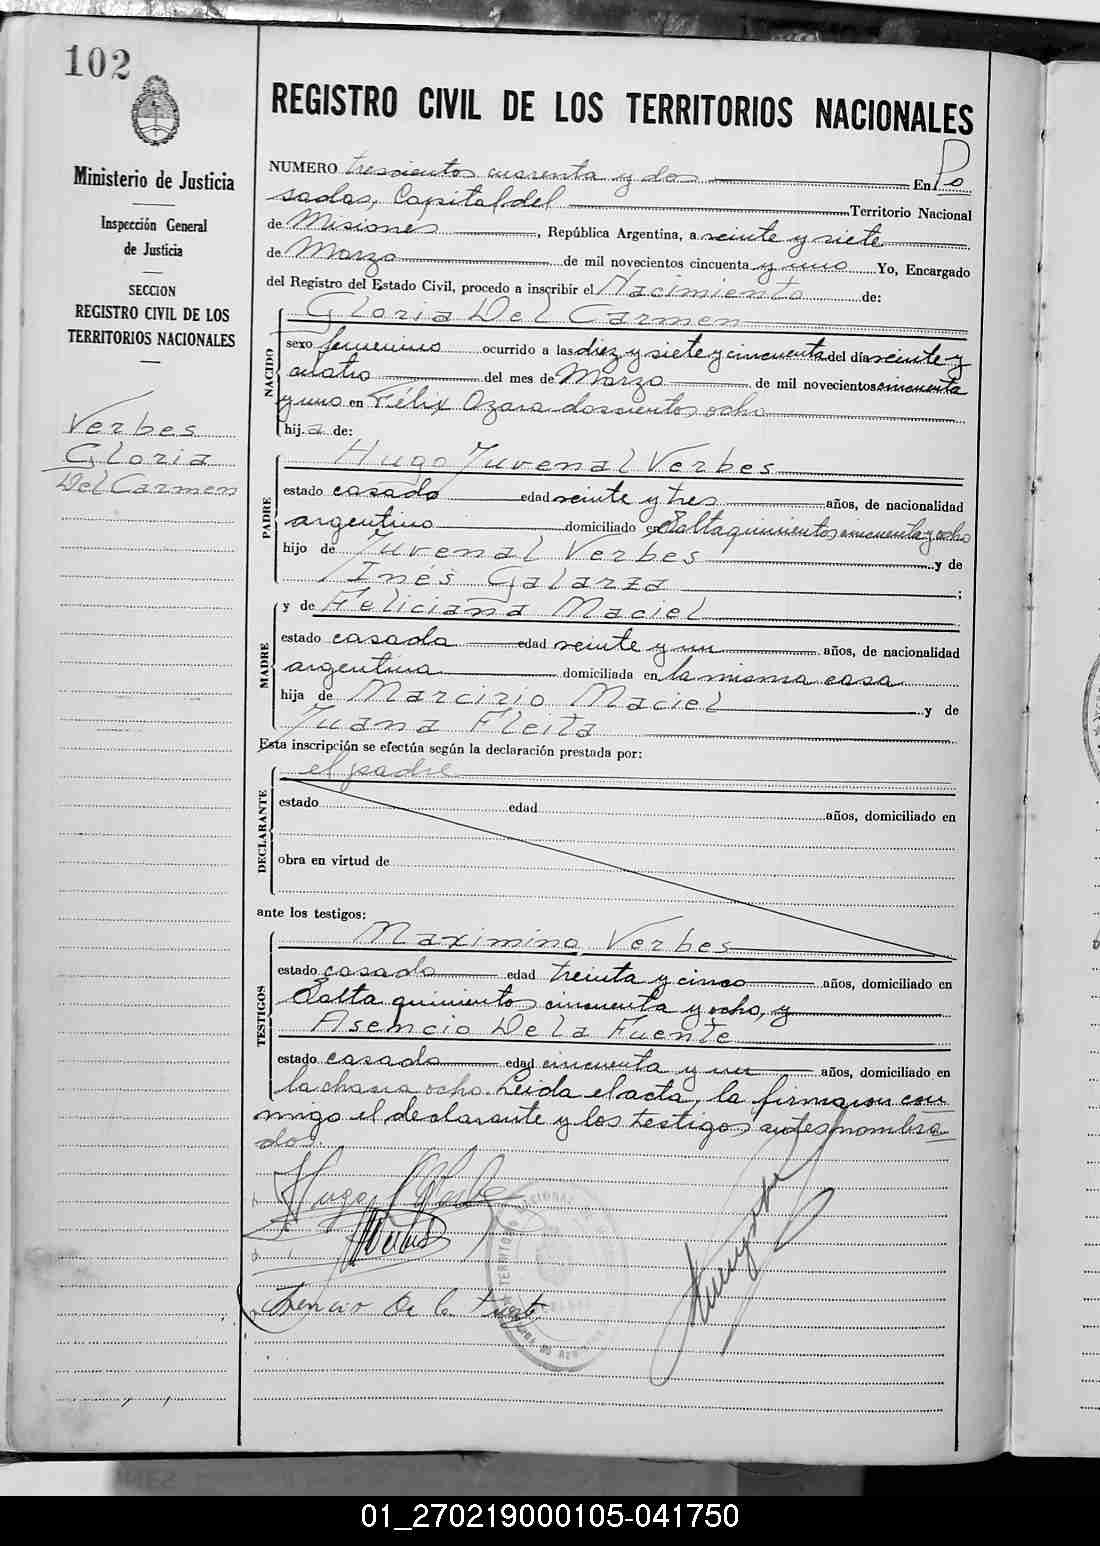 102
Ministerio de Justicia
Inspección General
de Justicia
SECCION
REGISTRO CIVIL DE LOS
TERRITORIOS NACIONALES
Verbes
Gloria
Del Carmen
REGISTRO CIVIL DE LOS TERRITORIOS NACIONALES
NUMERO trescientos cuarenta y dos En Po
sadas, Capital del Territorio Nacional
de Misiones, República Argentina, a veinte y siete
de Marzo de mil novecientos cincuenta y uno Yo, Encargado
del Registro del Estado Civil, procedo a inscribir el Nacimiento de:
NACIDO
Gloria Del Carmen
sexo femenino ocurrido a las diez y siete y cincuenta del día veinte y
cuatro del mes de Marzo de mil novecientos cincuenta
y uno en Félix Azara doscientos ocho
hija de:
PADRE
Hugo Juvenal Verbes
estado casado edad veinte y tres años, de nacionalidad
argentino domiciliado en Salta quinientos cincuenta y ocho
hijo de Juvenal Verbes y de
Inés Galarza ;
MADRE
y de Feliciana Maciel
estado casada edad veinte y un años, de nacionalidad
argentina domiciliada en la misma casa
hija de Marcirio Maciel y de
Juana Fleita
Esta inscripción se efectúa según la declaración prestada por:
DECLARANTE
el padre
estado edad años, domiciliado en
obra en virtud de
ante los testigos:
TESTIGOS
Maximino Verbes
estado casado edad treinta y cinco años, domiciliado en
Salta quinientos cincuenta y ocho, y
Asencio De la Fuente
estado casado edad cincuenta y un años, domiciliado en
la chacra ocho. Leida el acta, la firmaron con
migo el declarante y los testigos antes nombra
dos.
Asencio De la Fuente
01_270219000105-041750